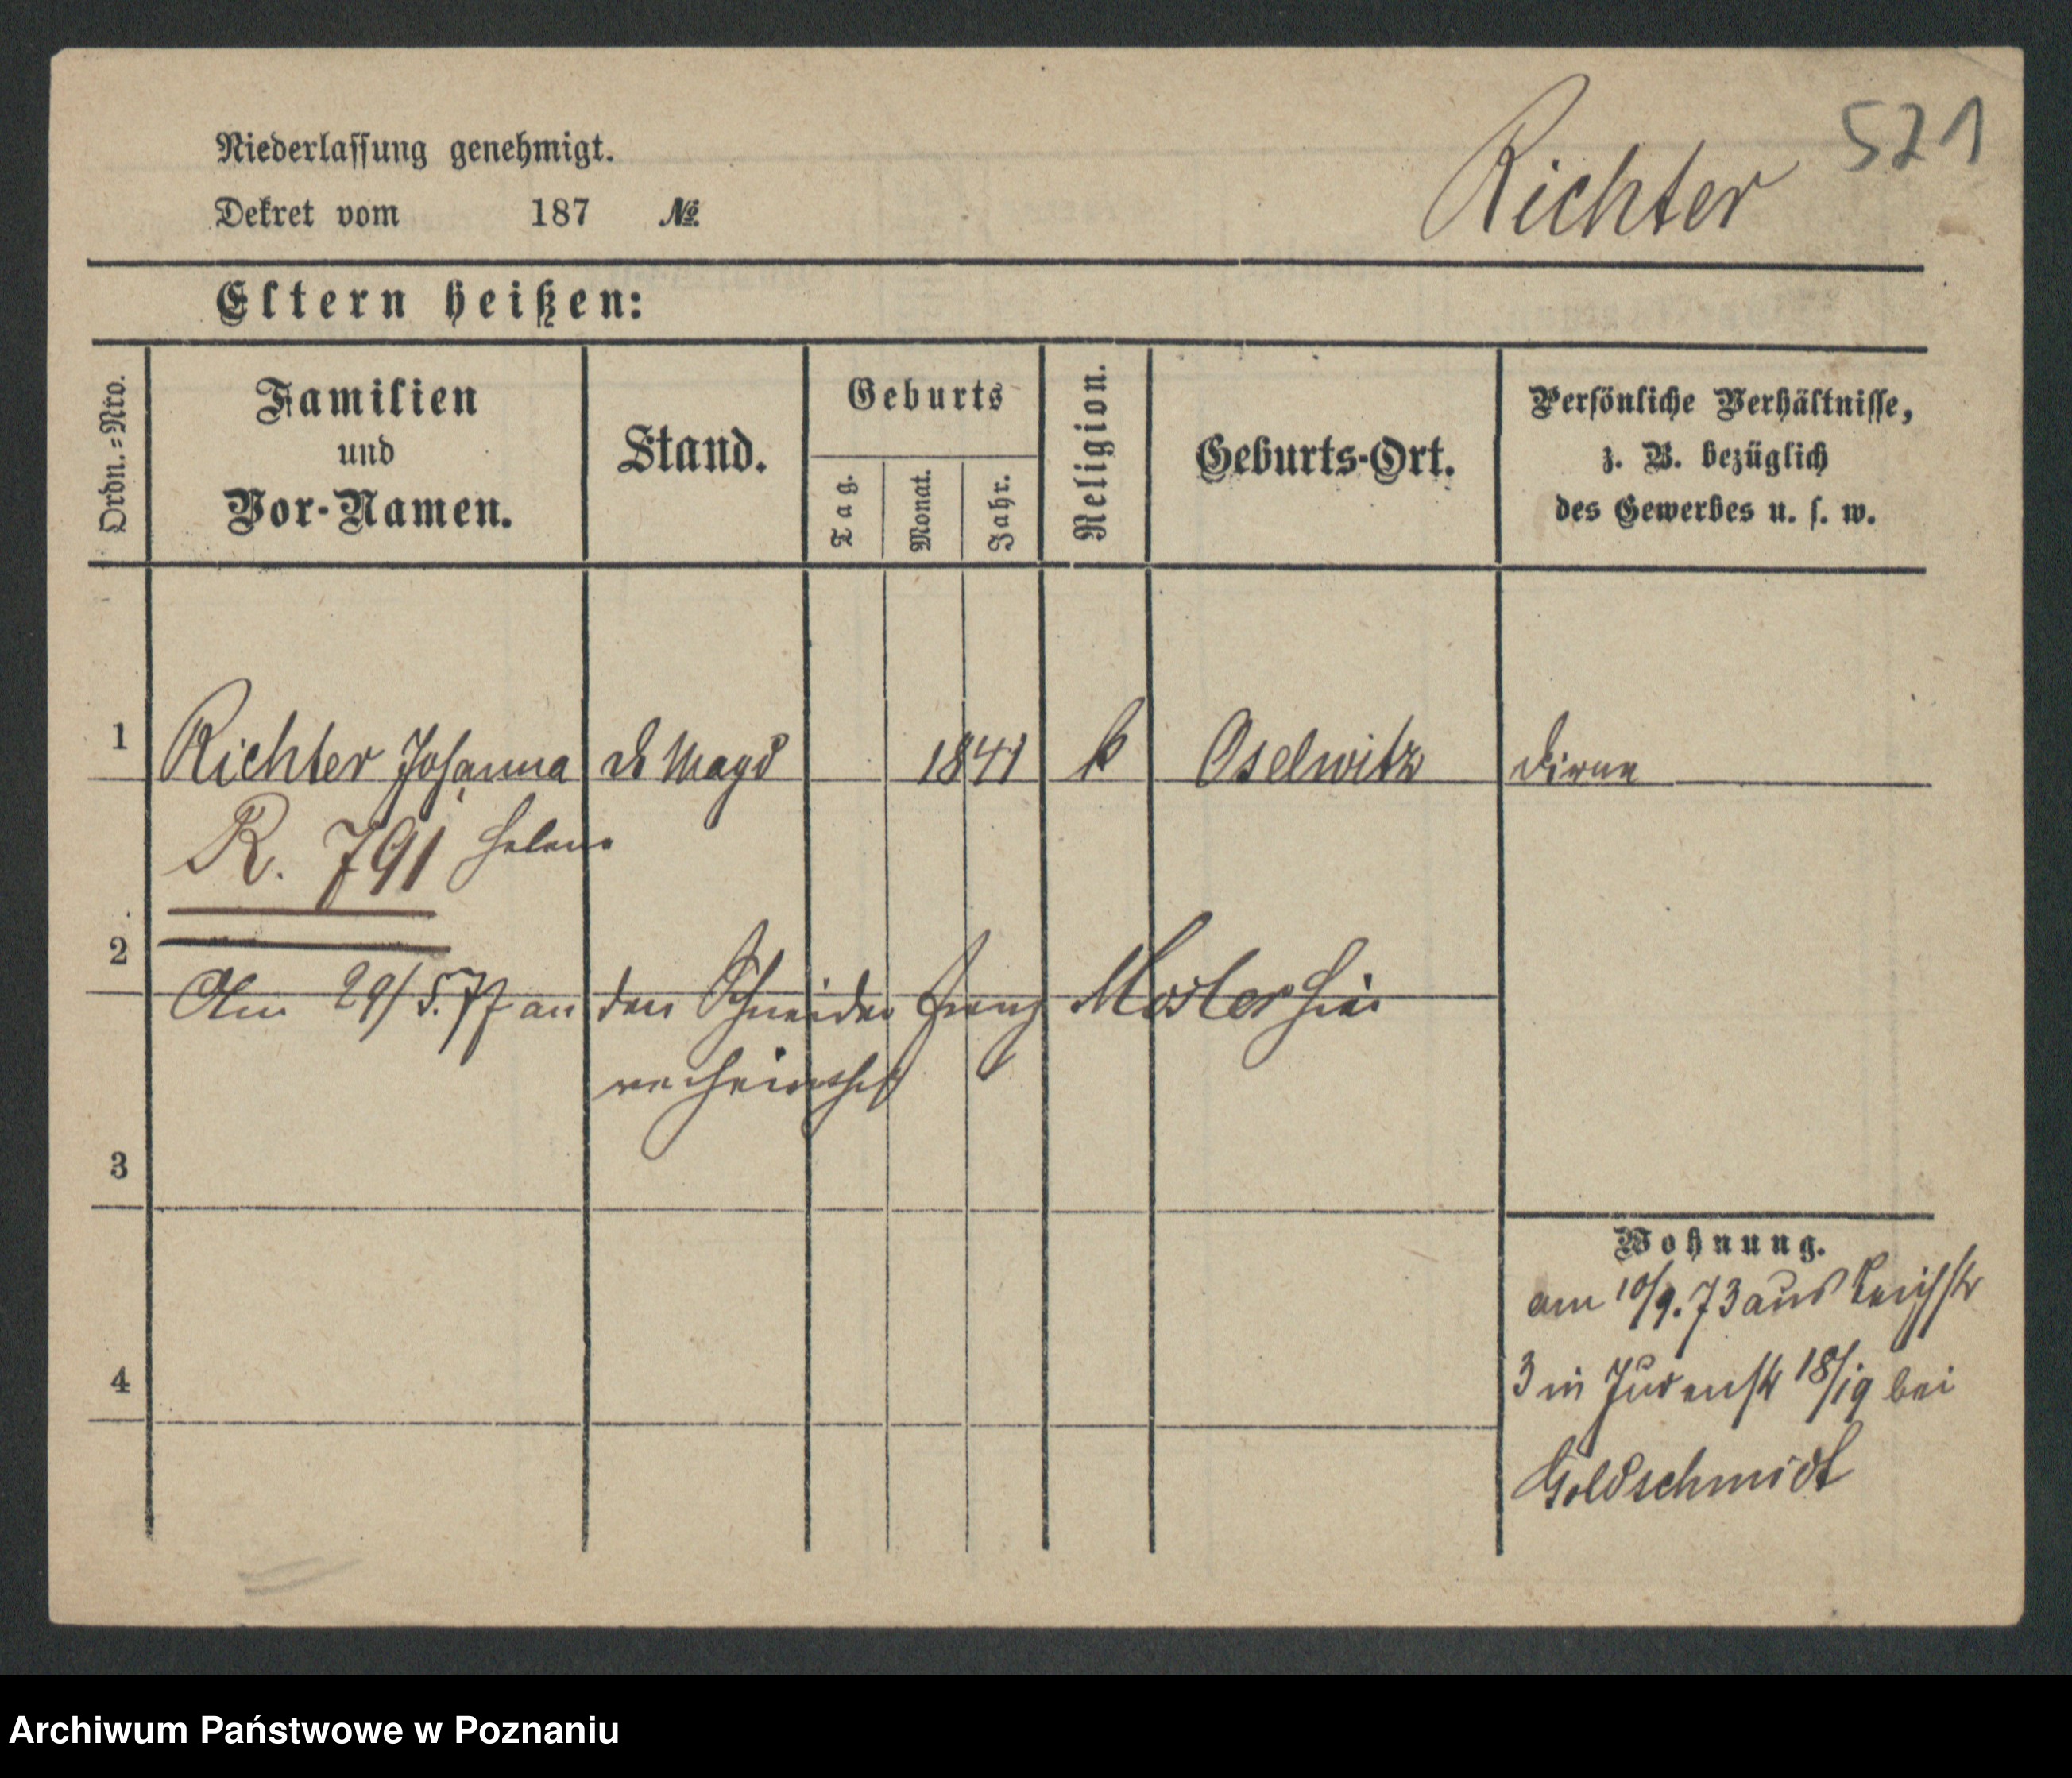 521
Richter
Niederlassung genehmigt.
Dekret vom 187 №
Eltern heißen:
Ordn.=Nro.
Familien
und
Vor-Namen.
Stand.
Geburts
Tag.
Monat.
Jahr.
Religion.
Geburts-Ort.
Persönliche Verhältnisse,
z. B. bezüglich
des Gewerbes u. s. w.
1 Richter Johanna Magd 1841 k Oselwitz Dirne
R. 791 Helene
2
Am 29/5.77 an den Schneider Franz Moster hier
verheirathet
3
4
Wohnung.
am 10/9.73 aus Teichstr
3 in Judenstr 18/19 bei
Goldschmidt
Archiwum Państwowe w Poznaniu